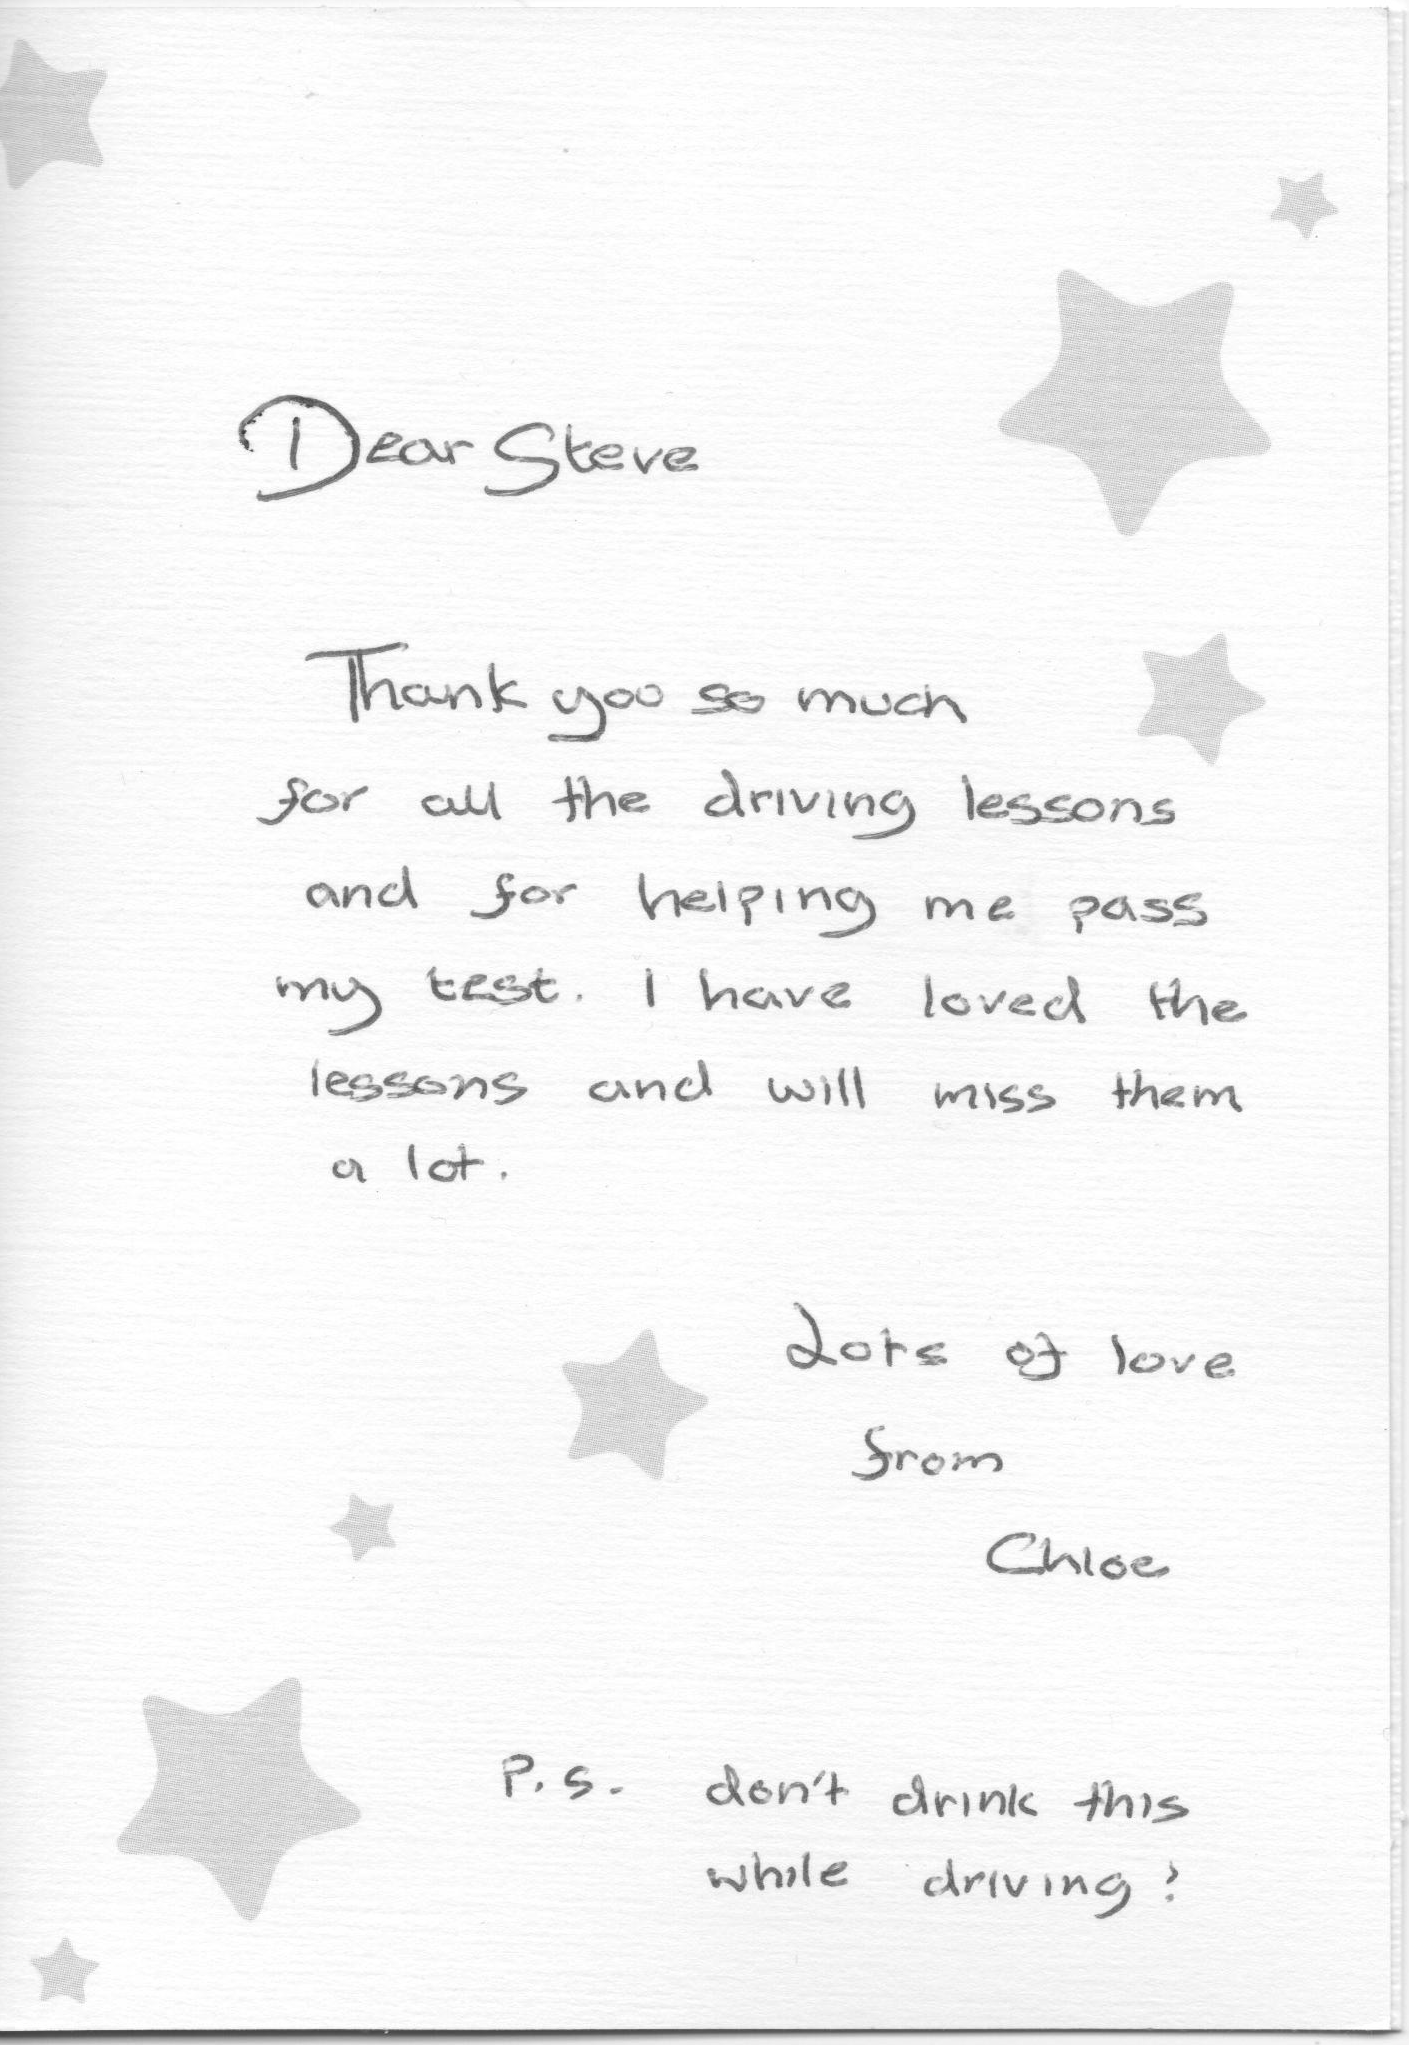 Dear Steve
Thank you so much
for all the driving lessons
and for helping me pass
my test. I have loved the
lessons and will miss them
a lot.
Lots of love
from
Chloe
P.S. don't drink this
while driving!